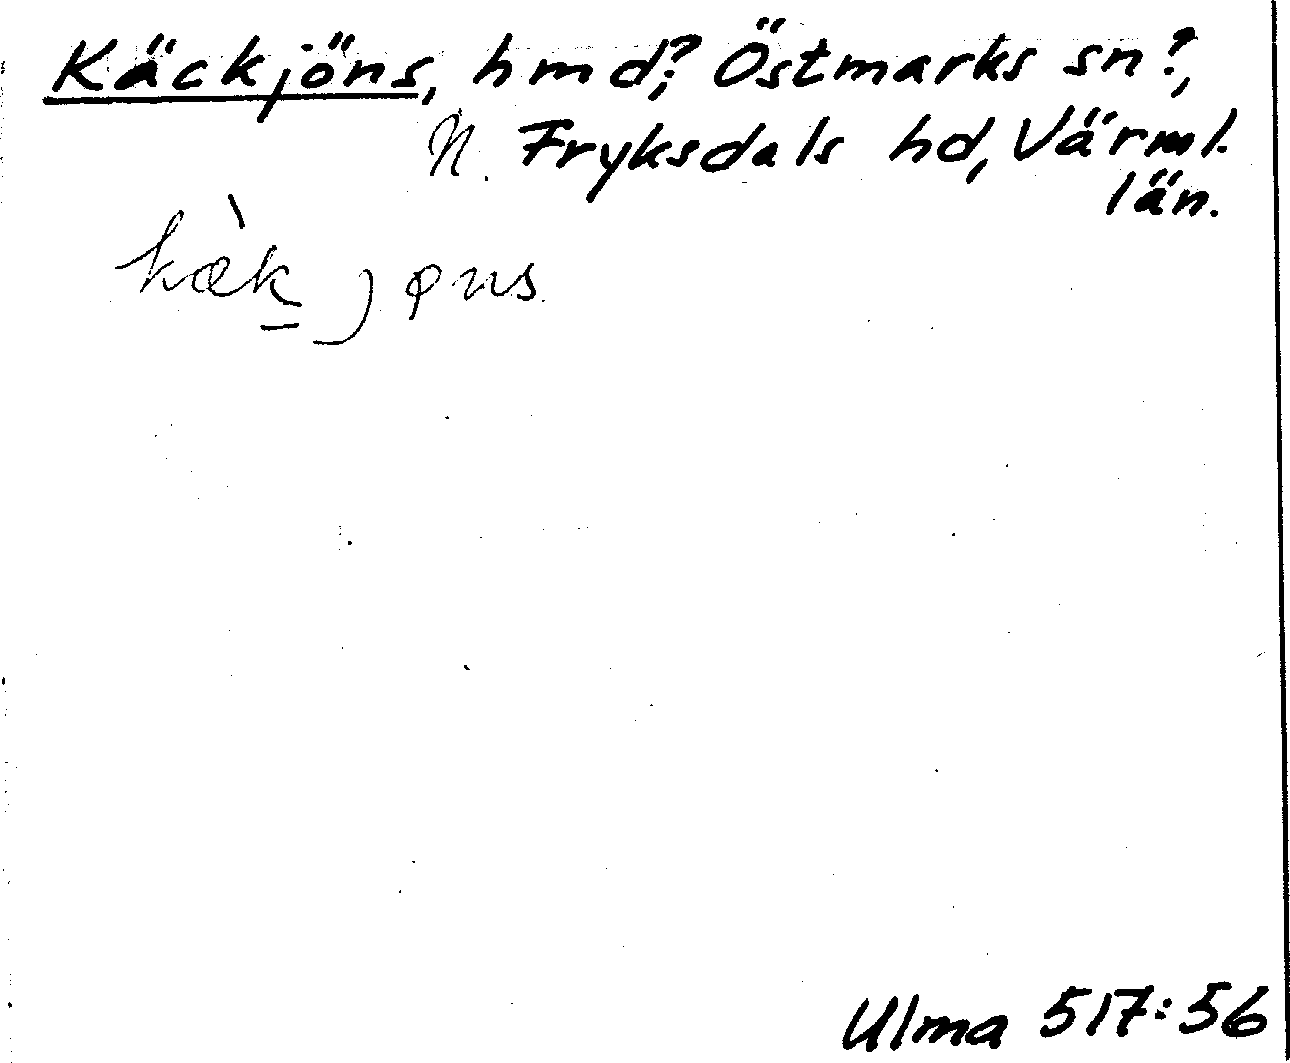 Käckjöns, hmd?; Östmarks sn?,
N. Fryksdals hd, Värml.
län.
kæ̀k jøns
Ulma 517:56